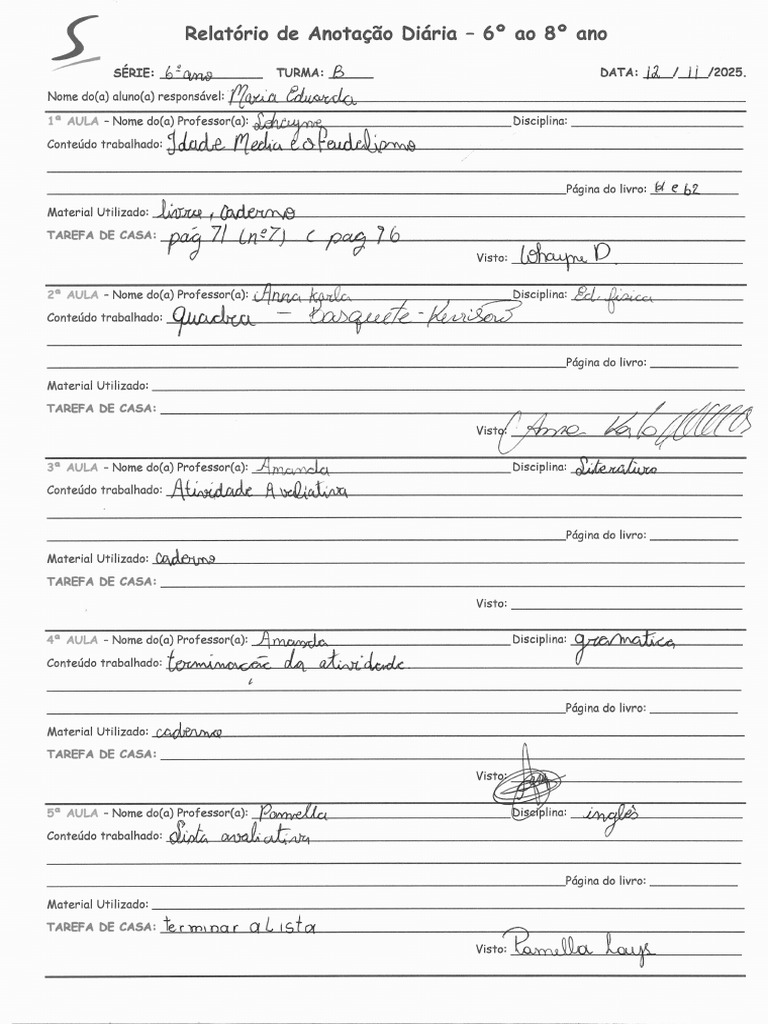 Relatório de Anotação Diária – 6º ao 8º ano
SÉRIE: 6º ano TURMA: B DATA: 12 / 11 /2025.
Nome do(a) aluno(a) responsável: Maria Eduarda
1ª AULA – Nome do(a) Professor(a): Lohayne Disciplina:
Conteúdo trabalhado: Idade Media e o Feudalismo
Página do livro: e 62
Material Utilizado: livro, caderno
TAREFA DE CASA: pág 71 (nº7) e pag 76
Visto: Lohayne D.
2ª AULA – Nome do(a) Professor(a): Anna Karla Disciplina: Ed. fisica
Conteúdo trabalhado: quadra – Basquete -
Página do livro:
Material Utilizado:
TAREFA DE CASA:
Visto: Anna Karla
3ª AULA – Nome do(a) Professor(a): Amanda Disciplina: Literatura
Conteúdo trabalhado: Atividade Avaliativa
Página do livro:
Material Utilizado: caderno
TAREFA DE CASA:
Visto:
4ª AULA – Nome do(a) Professor(a): Amanda Disciplina: gramatica
Conteúdo trabalhado: terminação da atividade
Página do livro:
Material Utilizado: caderno
TAREFA DE CASA:
Visto:
5ª AULA – Nome do(a) Professor(a): Pamella Disciplina: inglês
Conteúdo trabalhado: Lista avaliativa
Página do livro:
Material Utilizado:
TAREFA DE CASA: terminar a Lista
Visto: Pamella Lays